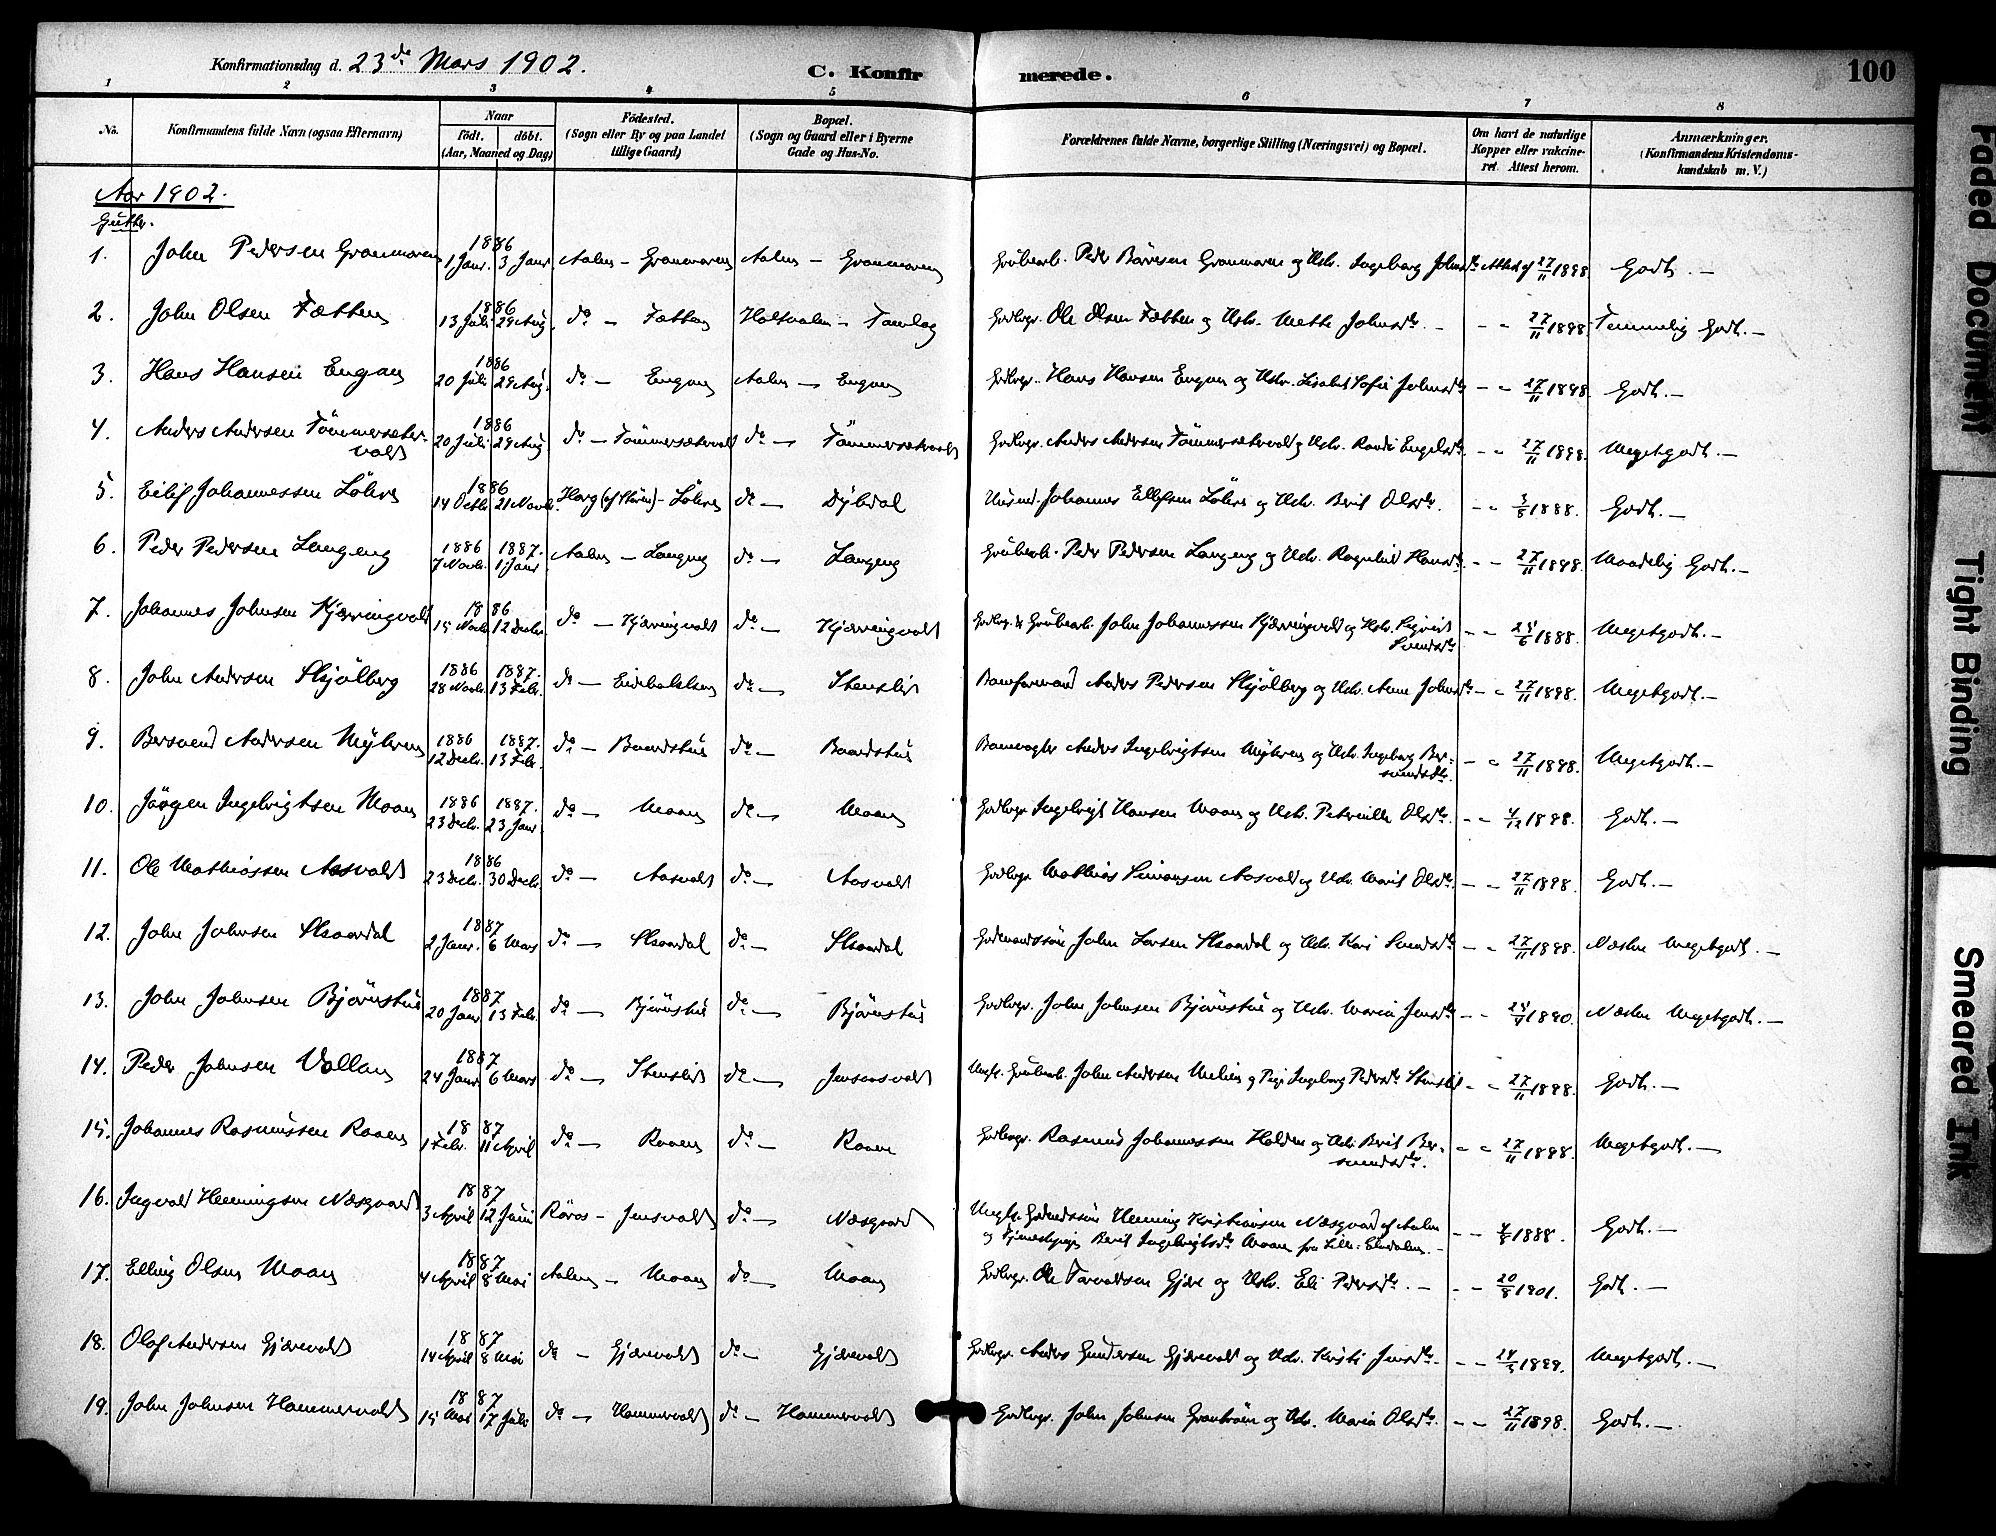 Konfirmationsdag d. 23de Mars 1902.
C. Konfirmerede.
100
1 2 3 4 5 6 7 8
No.
Konfirmandens fulde Navn (ogsaa Efternavn)
Naar
födt. döbt.
(Aar, Maaned og Dag)
Födested.
(Sogn eller By og paa Landet
tillige Gaard)
Bopæl.
(Sogn og Gaard eller i Byerne
Gade og Hus-No.
Forældrenes fulde Navne, borgerlige Stilling (Næringsvei) og Bopæl.
Om havt de naturlige
Kopper eller vakcine-
ret. Attest herom.
Anmærkninger.
(Konfirmandens Kristendoms-
kundskab m. V.)
Aar 1902.
Gutter.
1. John Pedersen Granmoren 1886 1 Janr. 3 Janr Aalen - Granmoren Aalen - Granmoren Grubearb. Peder Börresen Granmoren og Hstr. Ingeborg Johnsdtr Attest af 27/11 1898 Godt. -
2. John Olsen Tætten 1886 13 Juli 29 Aug. do - Tætten Holtaalen - Gaardbgr. Ole Olsen Tætten og Hstr. Mette Johnsdtr. - - " 27/11 1898 Temmelig Godt. -
3. Hans Hansen Engan 1886 20 Juli 29 Aug. do - Engan Aalen - Engan Gaardbgr. Hans Hansen Engan og Hstr. Lisabet Sofie Johnsdtr - " 27/11 1898 Godt. -
4. Anders Andersen Tömmersæter-
vold 1886 20 Juli 29 Aug. do - Tömmersætervold do - Tömmersætervold Gaardbgr. Anders Andersen Tömmersætervold og Hstr. Randi Engelsdtr. - " 27/11 1898. Megetgodt. -
5. Eilif Johannessen Löhre 1886 14 Octbr 21 Novbr. Horg (af Stören) - Löhre do - Dybdal Johannes Ellefsen Löhre og Hstr. Berit Olsdtr. - " 1888. Godt. -
6. Peder Pedersen Langeng 1886 1887. 7 Novbr. 1 Janr Aalen - Langeng do - Langeng Grubearb. Peder Pedersen Langeng og Hstr. Ragnhild Hansdtr. - " 27/11 1898. Maadelig Godt. -
7. Johannes Johnsen Kjærringvold 1886 15 Novbr. 12 Decbr. do - Kjærringvold do - Kjærringvold Gaardbgr. & Grubearb. John Johannessen Kjærringvold og Hstr. Sigrid
Svendsdtr - " 25/6 1888. Megetgodt. -
8. John Andersen Skjölberg 1886 1887. 28 Novbr. 13 Febr. do - do - Stenslid Anders Pedersen Skjölberg og Hstr. Anne Johnsdtr - " 27/11 1898. Megetgodt. -
9. Bersvend Andersen Myhren 1886 1887. 12 Decbr. 13 Febr. do - Baardshus do - Baardshus Banevogter Anders Ingebrigtsen Myhren og Hstr. Ingeborg Ber-
svendsdtr. - " 27/11 1898. Megetgodt. -
10. Jörgen Ingebrigtsen Moan 1886 1887. 23 Decbr. 23 Janr do - Moan do - Moan Gaardbgr. Ingebrigt Hansen Moan og Hstr. Peternille Olsdtr. - " 4/12 1898. Godt. -
11. Ole Mathiassen Aasvold 1886 23 Decbr. 30 Decbr. do - Aasvold do - Aasvold Gaardbgr. Mathias Simonsen Aasvold og Hstr. Marit Olsdtr. - " 27/11 1898. Godt. -
12. John Johnsen Skaardal 1887 2 Janr. 6 Mars do - Skaardal do - Skaardal Gaardmandssön John Larsen Skaardal og Hstr. Kari Svendsdtr - " 27/11 1898. Næsten Megetgodt. -
13. John Johnsen Björnshus 1887 20 Janr 13 Febr. do - Björnshus do - Björnshus Gaardbgr. John Johnsen Björnshus og Hstr. Maria Jensdtr - " 1890. Næsten Megetgodt. -
14. Peder Johnsen Vollan 1887 24 Janr 6 Mars do - Stenslid do - Jensasvold Ungk. Grubearb. John Andersen og Pige Ingeborg Pedersdtr Stenslid - " 27/11 1898. Godt. -
15. Johannes Rasmussen Raaen 1887 1 Febr. 11 April do - Raaen do - Raaen Gaardbgr. Rasmus Johannessen Holden og Hstr. Berit Ber-
svendsdtr. - " 27/11 1898. Megetgodt. -
16. Ingvald Henningsen Næsgaard 1887 3 April 12 Juni Röros - Jensvold do - Næsgaard Ungk. Gaardmandssön Henning Kristiansen Næsgaard af Aalen
og Tjenestepige Berit Ingebrigtsdtr Moan fra Lille-Elvedalen. - - - 1888. Godt. -
17. Elling Olsen Moan 1887 4 April 8 Mai Aalen - Moan do - Moan Gaardbgr. Ole Gjære og Hstr. Eli Pedersdtr. - - - 20/8 1901. Godt. -
18. Olaf Andersen Gjærevold 1887 14 April 8 Mai do - Gjærevold do - Gjærevold Gaardbgr. Anders Gundersen Gjærevold og Hstr. Kristi Jensdtr. - - " 1899. Megetgodt. -
19. John Johnsen Hammervold 1887 15 Mai 17 Juli do - Hammervold do - Hammervold Gaardbgr. John Johnsen Granbröen og Hstr. Maria Olsdtr. - " 27/11 1898. Godt. -
Faded Document
Tight Binding
Smeared Ink